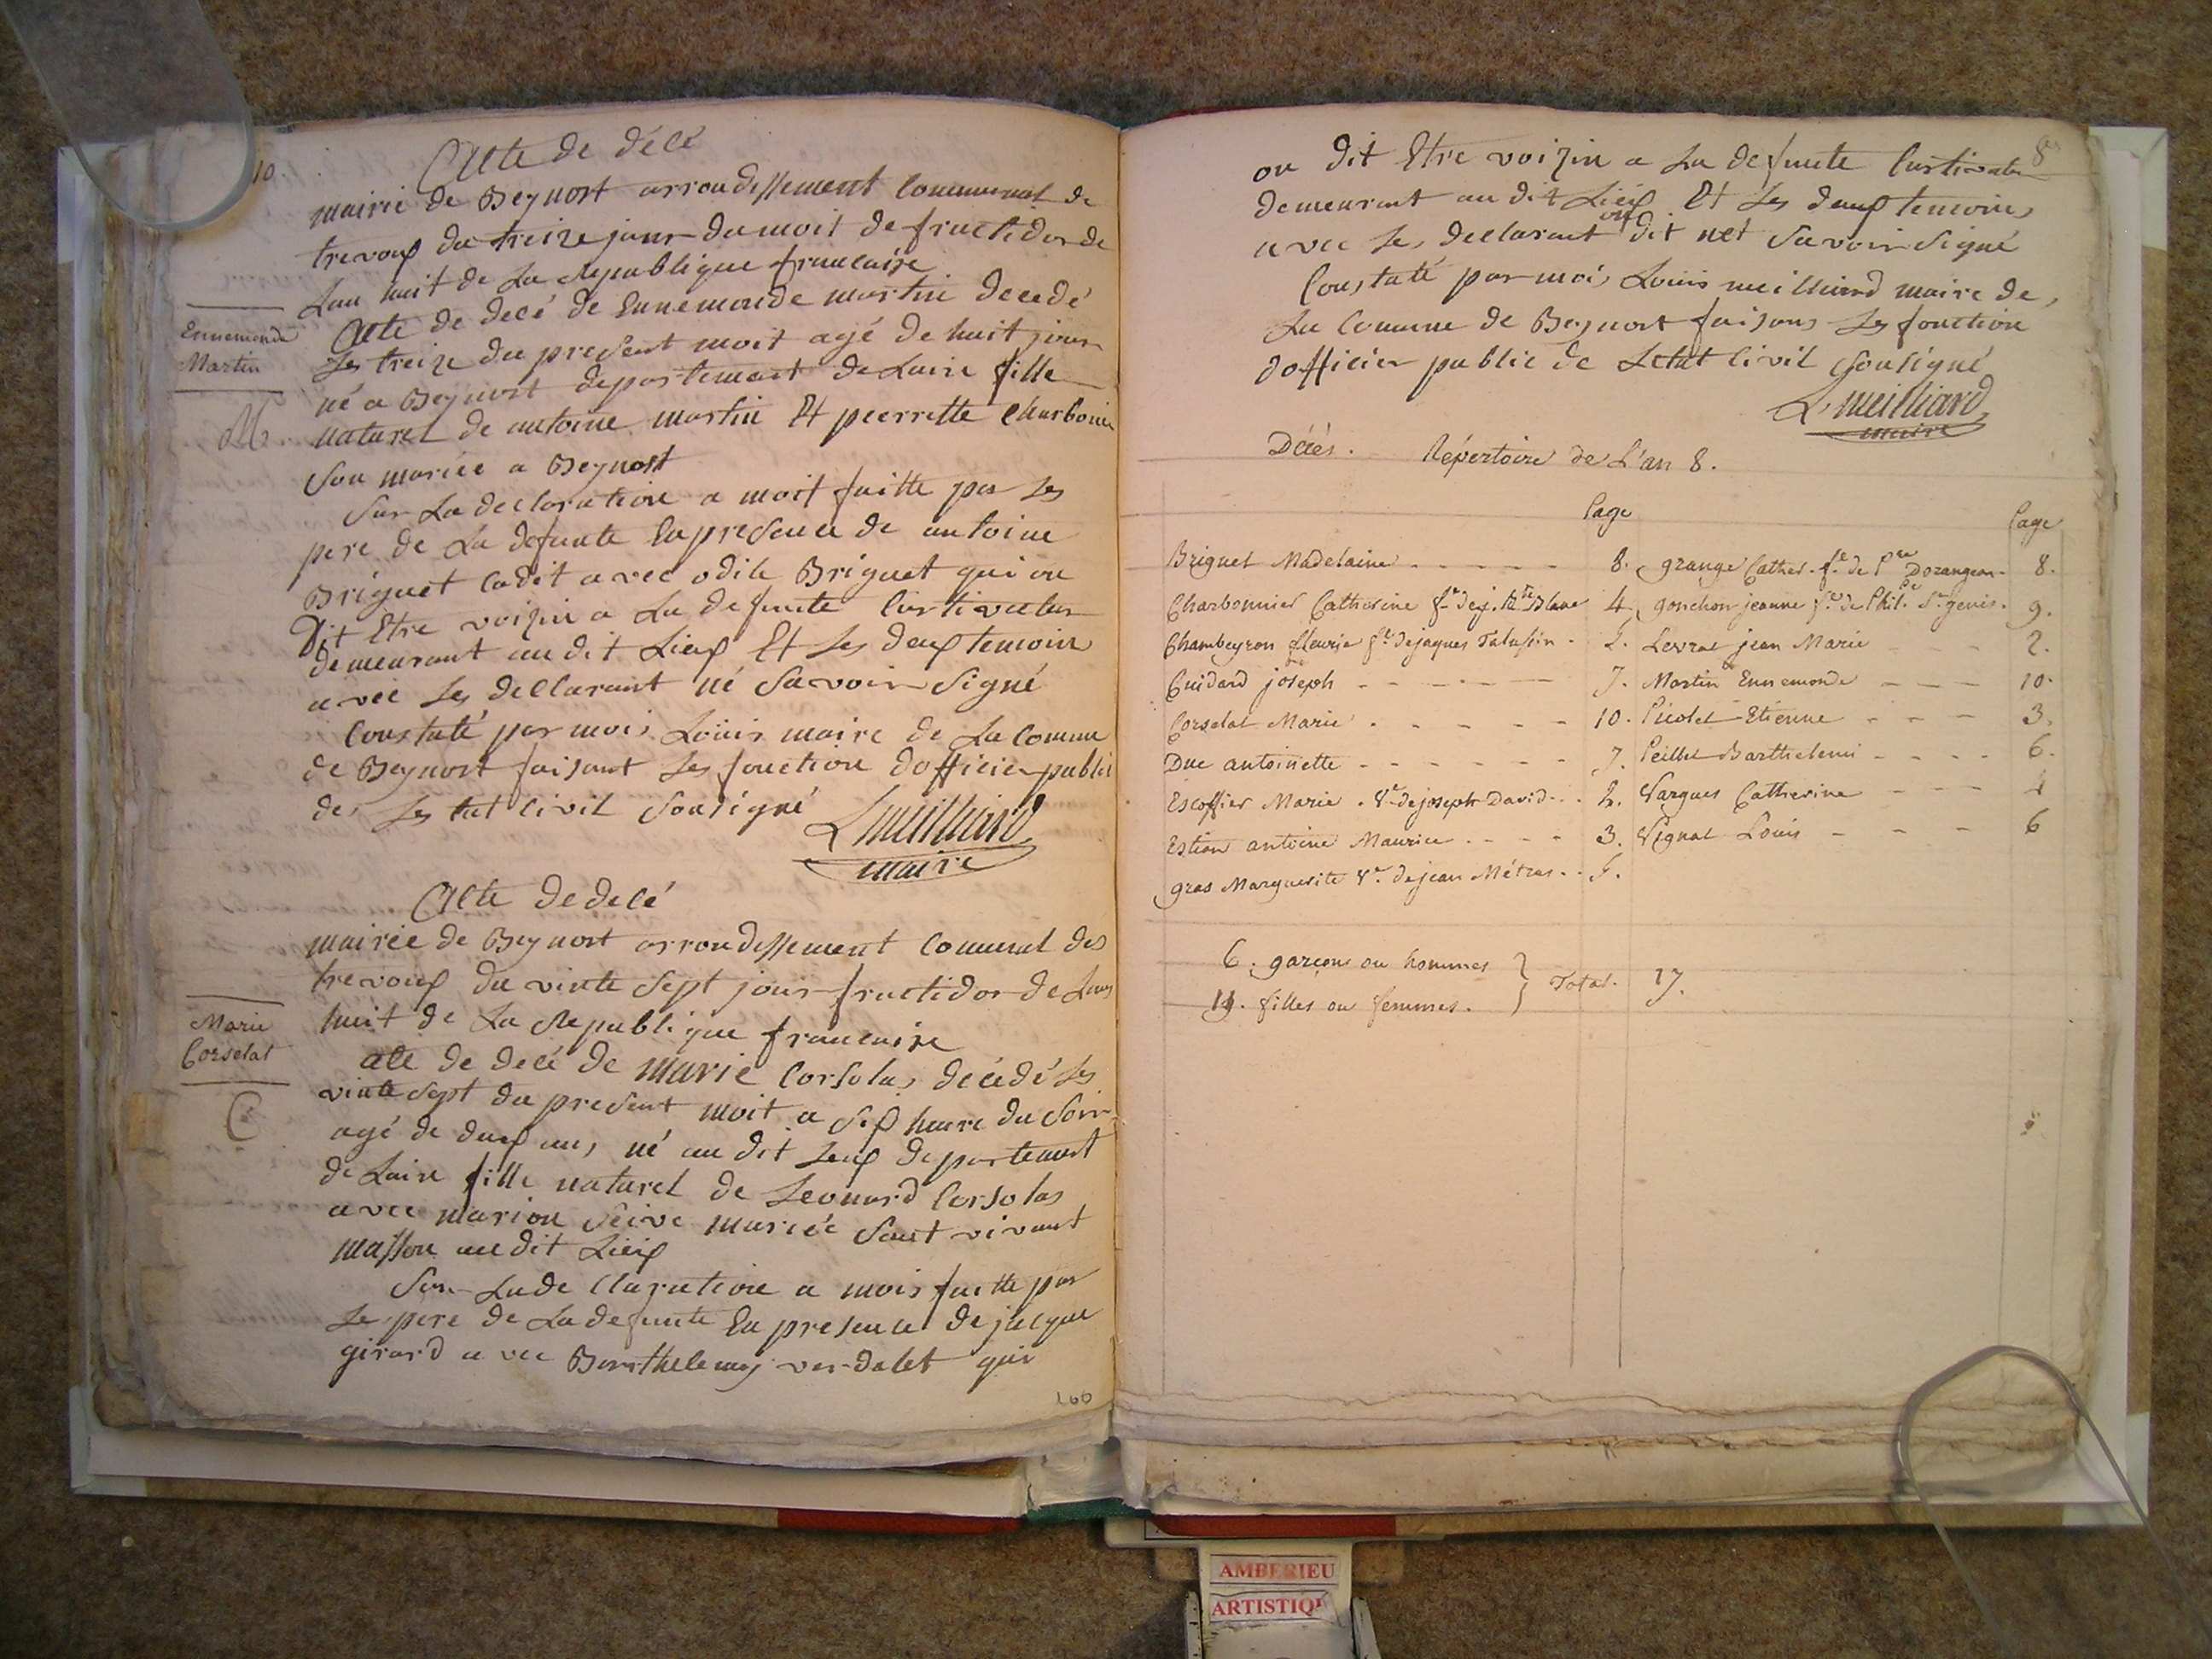 10.
Acte de décé
mairie de Beynost arrondissement Communal de
trevoux du treize jour du moit de fructidor de
Lan huit de La Republique francaise
Ennemonde
Martin
Acte de decé de Ennemonde martin decedé
Les treize du present moit agé de huit jour
né a Beynost departement de Lain fille
M.
naturel de antoine martin Et pierrette Charbonier
son mariée a Beynost
Sur La declaration a moit faitte par Les
pere de La defunte En presence de antoine
Briguet Cadit avec odile Briguet qui on
Dit Etre voizin a La defunte Curtivateur
demeurant au dit Lieux Et Les deux temoin
avec Les declarant né Savoir Signé
Constaté par moi Loüis maire de La Comune
de Beynost faisant Les fonction dofficier public
des Les tat Civil Sousigné
Lmeilliard
maire
Acte de decé
mairiee de Beynost arrondissement Comunal des
trevoux du vinte Sept jour fructidor de Lan
huit de La Republique francaise
Marie
Corselat
acte de decé de Marie Corsolas décédé Les
vinte Sept du present moit a six heure du Soir
C
agé de deux ans né au dit Leux departement
de Lain fille naturel de Leonard Corsolas
avec marion Seive mariée Sont vivant
masson au dit Lieux
Sur La declaration a mois faitte par
Le pere de La defunte En presence de jacque
girard avec Barthelemy verdalet qui
160
8
on dit Etre voizin a La defunte Curtivateur
demeurant au dit Lieux Et Les deux temoins
avec Les declarant on dit net Savoir Signé
Constaté par moi Louis meilliard maire de
La Comune de Beynost faisans Les fonction
dofficier public de Letat Civil Sousigné
L meilliard
maire
Décès. Répertoire de L'an 8.
Page Page
Briguet Madelaine 8. grange Cather. fe de Pre Dorangeon 8.
Charbonnier Catherine fe de j. Bte Blanc 4. gonchon jeanne fe de Phil. St genis. 9.
Chambeyron fleurie fe de jaques 2. Levrat jean Marie 2.
Cuidard joseph 7. Martin Ennemonde 10.
Corselat Marie 10. Picolet Etienne 3.
Duc antoinette 7. Peillet Barthelemi 6.
Escoffier Marie Ve de joseph David 2. Vargues Catherine
Estian antoine Maurice 3. Vignat Louis 6
gras Marguerite Ve de jean Métras
6. garçons ou hommes
11. filles ou femmes. } Total. 17.
AMBERIEU
ARTISTIQ